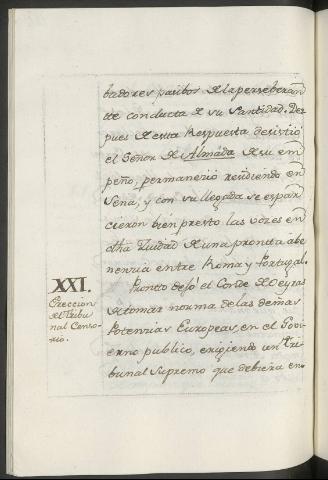 badores paribos de la perseberan
te conducta de su Santidad. Des
pues de esta Respuesta desistio
el Señor de Almàda de su em
peño, permanerio residiendo en
Sena, y con su llegada se espar
cieron bien presto las vozes en
dha Ziudad de una pronta abe
nencia entre Roma y Portugal.
XXI.
Ereccion
del Tribu
nal Censo-
rio.
Pronto dejo el Conde de Oeyras
de tomar norma de las demas
Potencias Europeas, en el Govi
erno publico, erigiendo un Tri-
bunal Supremo que debiera en-